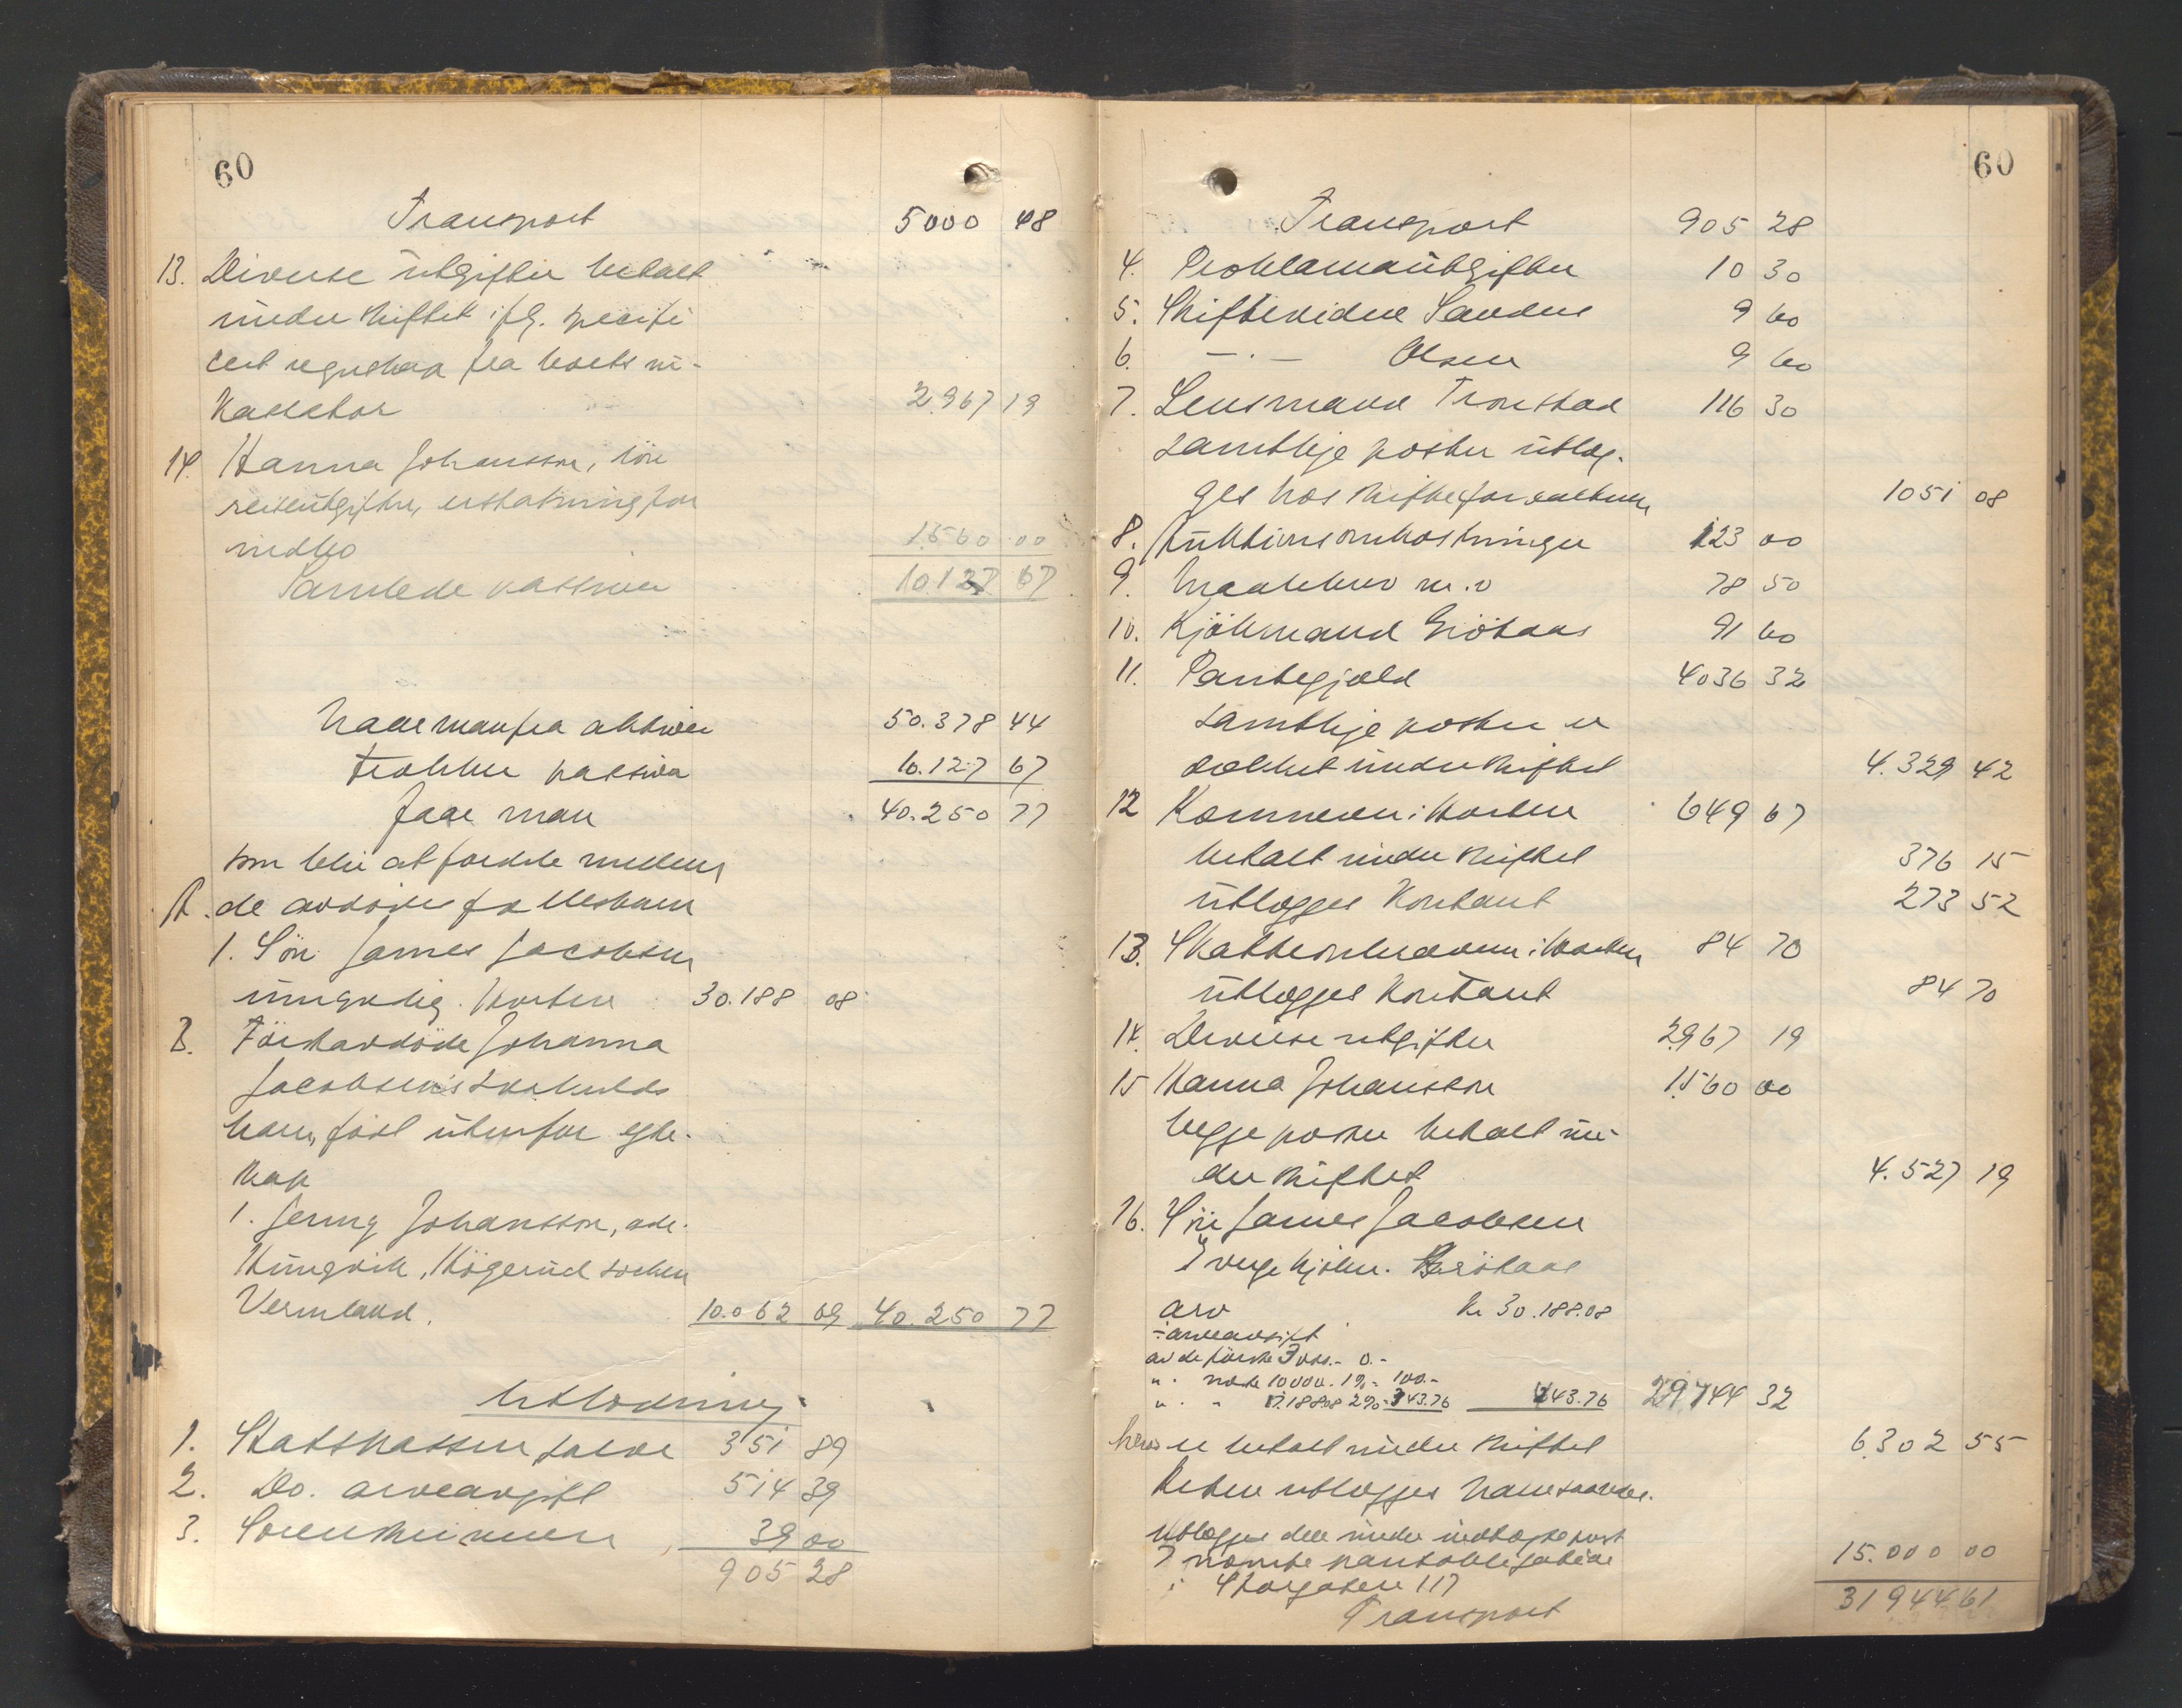 60
Transport 5000 48
13. Diverse utgifter betalt
under skiftet ifg. specifi
cert regnskap fra boets in-
kassator 2.967 19
14. Hanna Johansson, lön
reiseutgifter, erstatning for
indbo 1.560 00
Samlede passiva 10.127 67
Naar man fra aktiva 50.378 44
trækker passiva 10.127 67
faar man 40.250 77
som blir at fordele mellem
A. de avdödes fællesbarn
1. Sön James Jacobsen
umyndig. Horten 30.188 08
B. Förstavdöde Johanna
Jacobsens særkulds
barn, født utenfor egte-
skap
1. Jenny Johansson, adr.
Kungvik, Högerud socken
Vermland. 10.062 69 40.250 77
Utlodning
1. Statskassen salær 351 89
2. Do. arveavgift 514 39
3. Sorenskriveren 39 00
905 28
60
Transport 905 28
4. Proklamautgifter 10 30
5. Skiftevidne Sandene 9 60
6. — . — Olsen 9 60
7. Lensmand Tronstad 116 30
samtlige poster utlæg-
ges hos skifteforvalteren 1051 08
8. Auktionsomkostninger 123 00
9. Maalebrev m.v 78 50
10. Kjöbmand Gröstaas 91 60
11. Pantegjæld 4036 32
samtlige poster er
dækket under skiftet 4.329 42
12 Kæmneren i Horten 649 67
betalt under skiftet 376 15
utlægges kontant 273 52
13. Skatteopkræveren i Horten 84 70
utlægges kontant 84 70
14. Diverse utgifter 2967 19
15 Hanna Johansson 1560 00
begge poster betalt un-
der skiftet 4.527 19
16. Sön James Jacobsen
arv Kr 30.188.08
÷ arveavgift
av de förste 3000.- 0.-
" . næste 10000. 1% - 100.-
" . " 17.188.08 2% - 343.76 443.76 29.744 32
herav er betalt under skiftet 6.302 55
Resten utlægges
Utlægges dele under indtægtspost
7 nævnte pantobligation
i Storgaten 117 15.000 00
Transport 31944 61